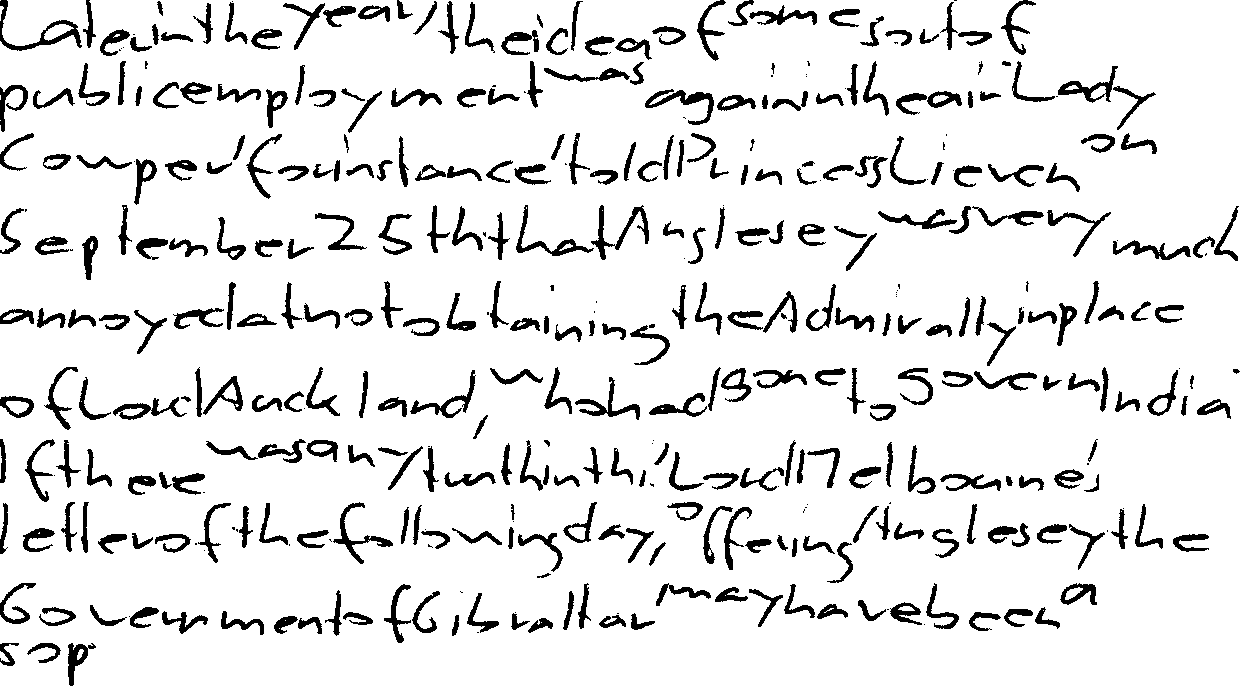 Later in the year, the idea of some sort of
public employment was again in the air. Lady
Cowper, for instance, told Princess Lieven on
September 25th that Anglesey was very much
annoyed at not obtaining the Admirally in place
of Lord Auckland, who had gone to govern India.
If there was any truth in this, Lord Melbourne's
letter of the following day, offering Anglesey the
Government of Gibraltar may have been a
sop.